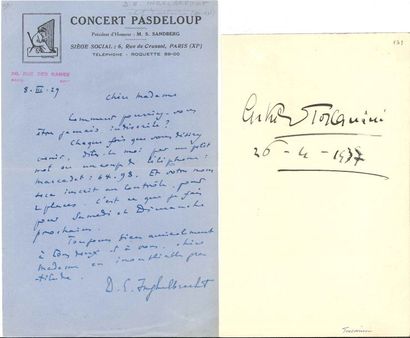 CONCERT PASDELOUP
Président d'Honneur : M. S. SANDBERG
SIÈGE SOCIAL : 6, Rue de Crussol, PARIS (XIe)
TÉLÉPHONE : ROQUETTE
8. III. 29
Chère madame
Comment pourriez-vous
être jamais indiscrète ?
Chaque fois que vous désirez
venir, dites le moi par un petit
mot ou un coup de téléphone :
marcadet : 64.98. Et votre nom
sera inscrit au contrôle, pour
2 places. C'est ce que je fais
pour Samedi et Dimanche
prochains.
Toujours bien amicalement
à vous, chère
madame en
D. E. Inghelbrecht
Toscanini
26-4-1937
Toscanini